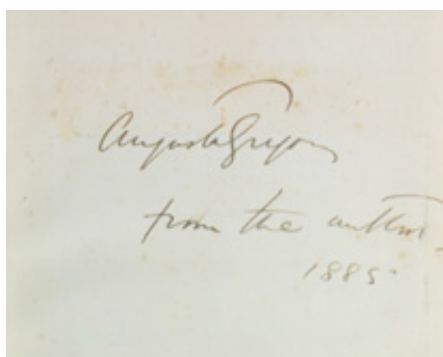 Augusta Gregory
from the author
1885